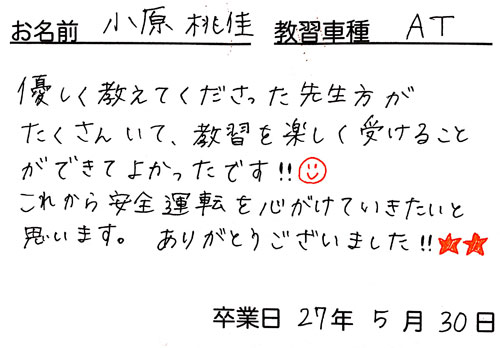 お名前 小原 桃佳 教習車種 AT
優しく教えてくださった先生方が
たくさんいて、教習を楽しく受けること
ができてよかったです!!
これから安全運転を心がけていきたいと
思います。 ありがとうございました!!
卒業日 27年 5月 30日